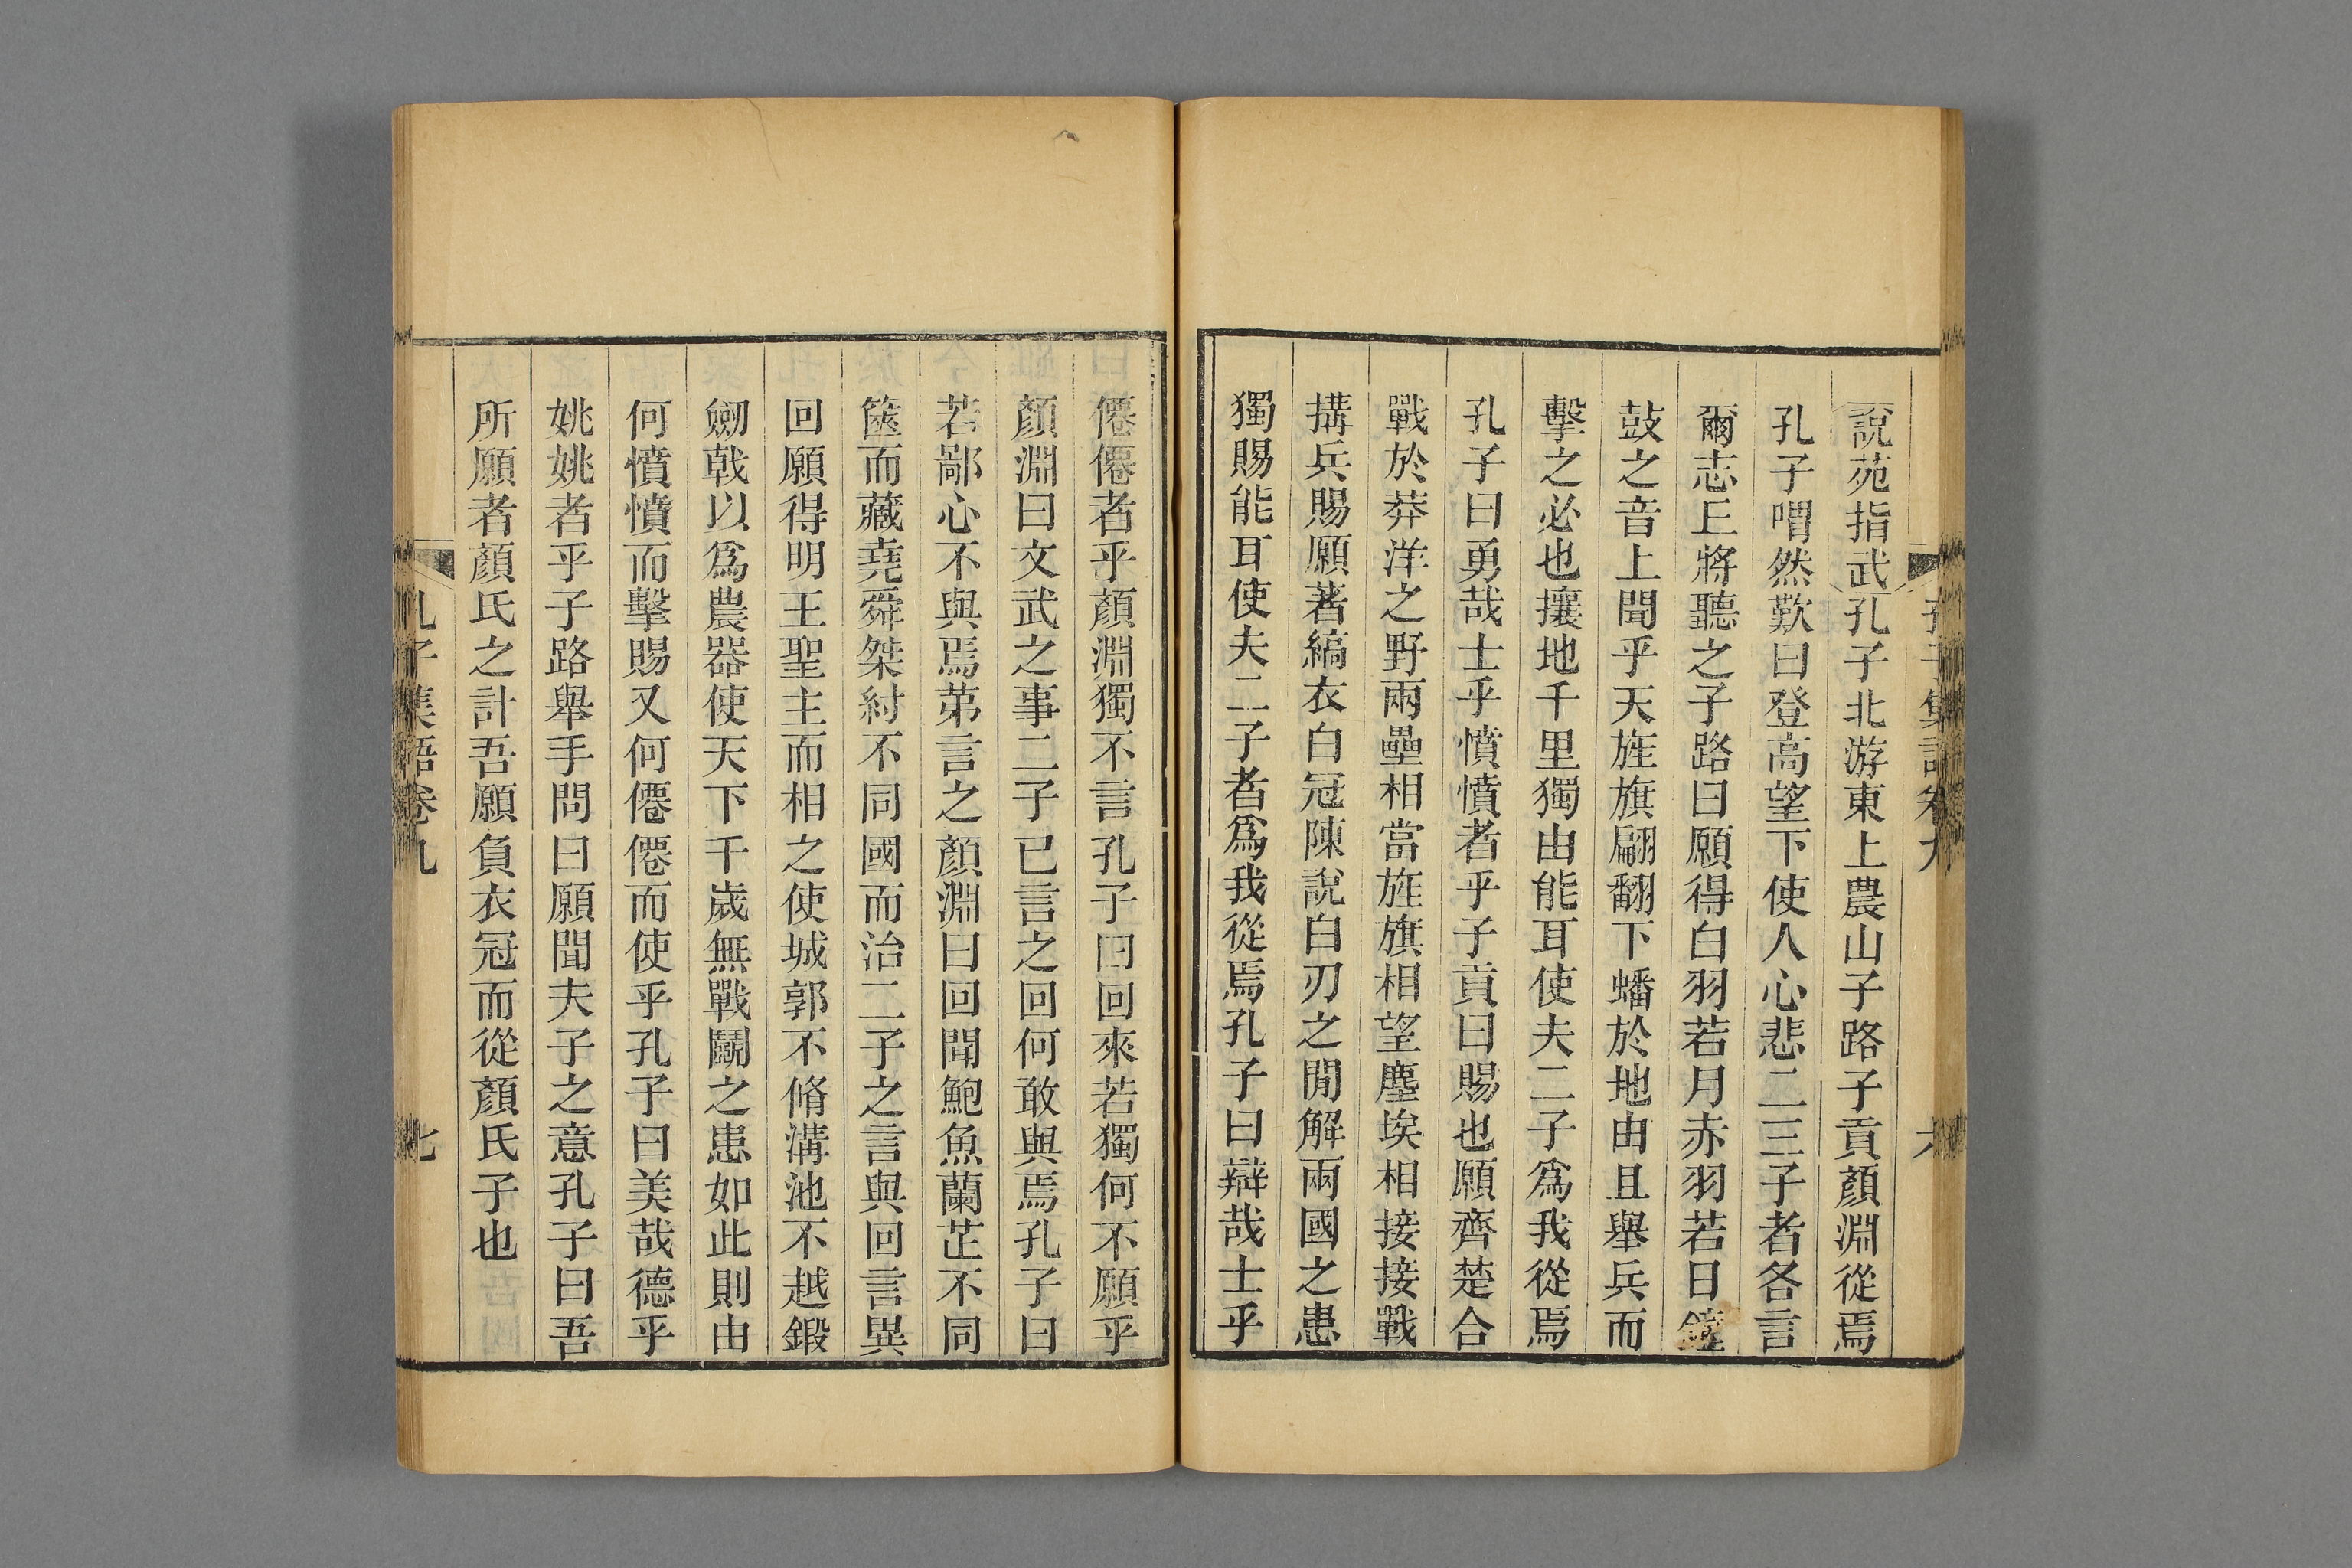 說苑指武孔子北游東上農山子路子貢顏淵從焉
孔子喟然歎曰登高望下使人心悲二三子者各言
爾志丘將聽之子路曰願得白羽若月赤羽若日鐘
鼓之音上聞乎天旌旗翩翻下蟠於地由且舉兵而
擊之必也攘地千里獨由能耳使夫二子爲我從焉
孔子曰勇哉士乎憤憤者乎子貢曰賜也願齊楚合
戰於莽洋之野兩壘相當旌旗相望塵埃相接接戰
搆兵賜願著縞衣白冠陳說白刃之閒解兩國之患
獨賜能耳使夫二子者爲我從焉孔子曰辯哉士乎
僊僊者乎顏淵獨不言孔子曰回來若獨何不願乎
顏淵曰文武之事二子已言之回何敢與焉孔子曰
若鄙心不與焉第言之顏淵曰回聞鮑魚蘭芷不同
篋而藏堯舜桀紂不同國而治二子之言與回言異
回願得明王聖主而相之使城郭不脩溝池不越鍛
劒戟以爲農器使天下千歲無戰鬭之患如此則由
何憤憤而擊賜又何僊僊而使乎孔子曰美哉德乎
姚姚者乎子路舉手問曰願聞夫子之意孔子曰吾
所願者顏氏之計吾願負衣冠而從顏氏子也
孔子集語卷九
七